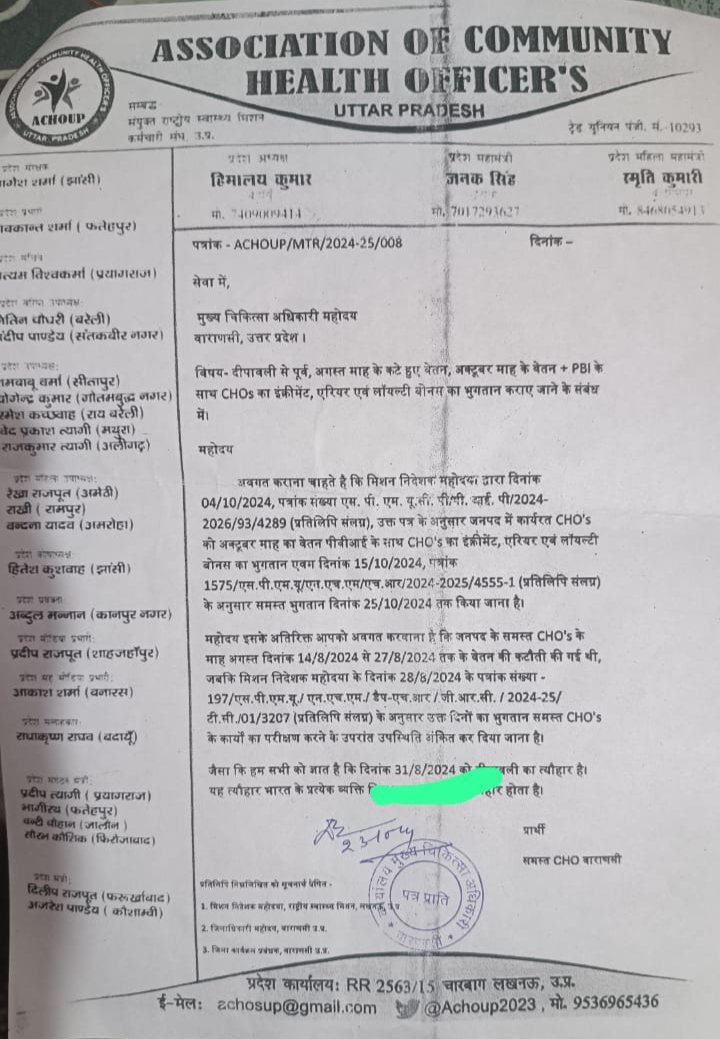 ASSOCIATION OF COMMUNITY
HEALTH OFFICER'S
UTTAR PRADESH
ACHOUP
UTTAR PRADESH
सम्बद्ध
संयुक्त राष्ट्रीय स्वास्थ्य मिशन
कर्मचारी संघ, उ.प्र.
ट्रेड यूनियन पंजी. सं.-10293
प्रदेश अध्यक्ष
हिमालय कुमार
मो. 7409009414
प्रदेश महामंत्री
जनक सिंह
मो. 7017293627
प्रदेश महिला महामंत्री
रमृति कुमारी
मो. 8468054913
प्रदेश संरक्षक
शर्मा (झांसी)
प्रदेश प्रभारी
शर्मा ( फतेहपुर)
विश्वकर्मा (प्रयागराज)
चौधरी (बरेली)
पाण्डेय (संतकबीर नगर)
प्रदेश उपाध्यक्ष:
वर्मा (सीतापुर)
कुमार (गौतमबुद्ध नगर)
कच्छवाह (राय बरेली)
प्रकाश त्यागी (मथुरा)
राजकुमार त्यागी (अलीगढ़)
रेखा राजपूत (अमेठी)
राखी ( रामपुर)
वन्दना यादव (अमरोहा)
प्रदेश कोषाध्यक्ष
हितेश कुशवाह (झांसी)
प्रदेश प्रवक्ता
अब्दुल मन्नान (कानपुर नगर)
प्रदेश मीडिया प्रभारी
प्रदीप राजपूत (शाहजहाँपुर)
प्रदेश सह मीडिया प्रभारी
आकाश शर्मा (बनारस)
राधाकृष्ण राघव (बदायूँ)
प्रदीप त्यागी ( प्रयागराज)
भागीरथ (फतेहपुर)
बन्टी चौहान (जालौन )
सौरभ कौशिक (फिरोजाबाद)
दिलीप राजपूत (फरुर्खाबाद)
पाण्डेय ( कौशाम्बी)
पत्रांक - ACHOUP/MTR/2024-25/008
दिनांक –
सेवा में,
मुख्य चिकित्सा अधिकारी महोदय
वाराणसी, उत्तर प्रदेश ।
विषय- दीपावली से पूर्व, अगस्त माह के कटे हुए वेतन, अक्टूबर माह के वेतन + PBI के
साथ CHOs का इंक्रीमेंट, एरियर एवं लॉयल्टी बोनस का भुगतान कराए जाने के संबंध
में।
महोदय
अवगत कराना चाहते है कि मिशन निदेशक महोदया द्वारा दिनांक
04/10/2024, पत्रांक संख्या एस. पी. एम. यू.सी. पी/पी. आई. पी/2024-
2026/93/4289 (प्रतिलिपि संलग्न), उक्त पत्र के अनुसार जनपद में कार्यरत CHO's
को अक्टूबर माह का वेतन पीबीआई के साथ CHO's का इंक्रीमेंट, एरियर एवं लॉयल्टी
बोनस का भुगतान एवम दिनांक 15/10/2024, पत्रांक
1575/एस.पी.एम.यू/एन.एच.एम/एच.आर/2024-2025/4555-1 (प्रतिलिपि संलग्न)
के अनुसार समस्त भुगतान दिनांक 25/10/2024 तक किया जाना है।
महोदय इसके अतिरिक्त आपको अवगत करवाना है कि जनपद के समस्त CHO's के
माह अगस्त दिनांक 14/8/2024 से 27/8/2024 तक के वेतन की कटौती की गई थी,
जबकि मिशन निदेशक महोदया के दिनांक 28/8/2024 के पत्रांक संख्या -
197/एस.पी.एम.यू./ एन.एच.एम./ डैप-एच.आर / जी.आर.सी. / 2024-25/
टी.सी./01/3207 (प्रतिलिपि संलग्न) के अनुसार उक्त दिनों का भुगतान समस्त CHO's
के कार्यो का परीक्षण करने के उपरांत उपस्थिति अंकित कर दिया जाना है।
जैसा कि हम सभी को ज्ञात है कि दिनांक 31/8/2024 को का त्यौहार है।
यह त्यौहार भारत के प्रत्येक व्यक्ति होता है।
प्रार्थी
समस्त CHO वाराणसी
कार्यालय मुख्य चिकित्सा अधिकारी
पत्र प्राप्ति
वाराणसी
प्रतिलिपि निम्नलिखित को सूचनार्थ प्रेषित -
1. मिशन निदेशक महोदया, राष्ट्रीय स्वास्थ्य मिशन, लखनऊ, उ.प्र
2. जिलाधिकारी महोदय, वाराणसी उ.प्र.
3. जिला कार्यक्रम प्रबंधक, वाराणसी उ.प्र.
प्रदेश कार्यालय: RR 2563/15 चारबाग लखनऊ, उ.प्र.
ई-मेल: achosup@gmail.com @Achoup2023 , मो. 9536965436